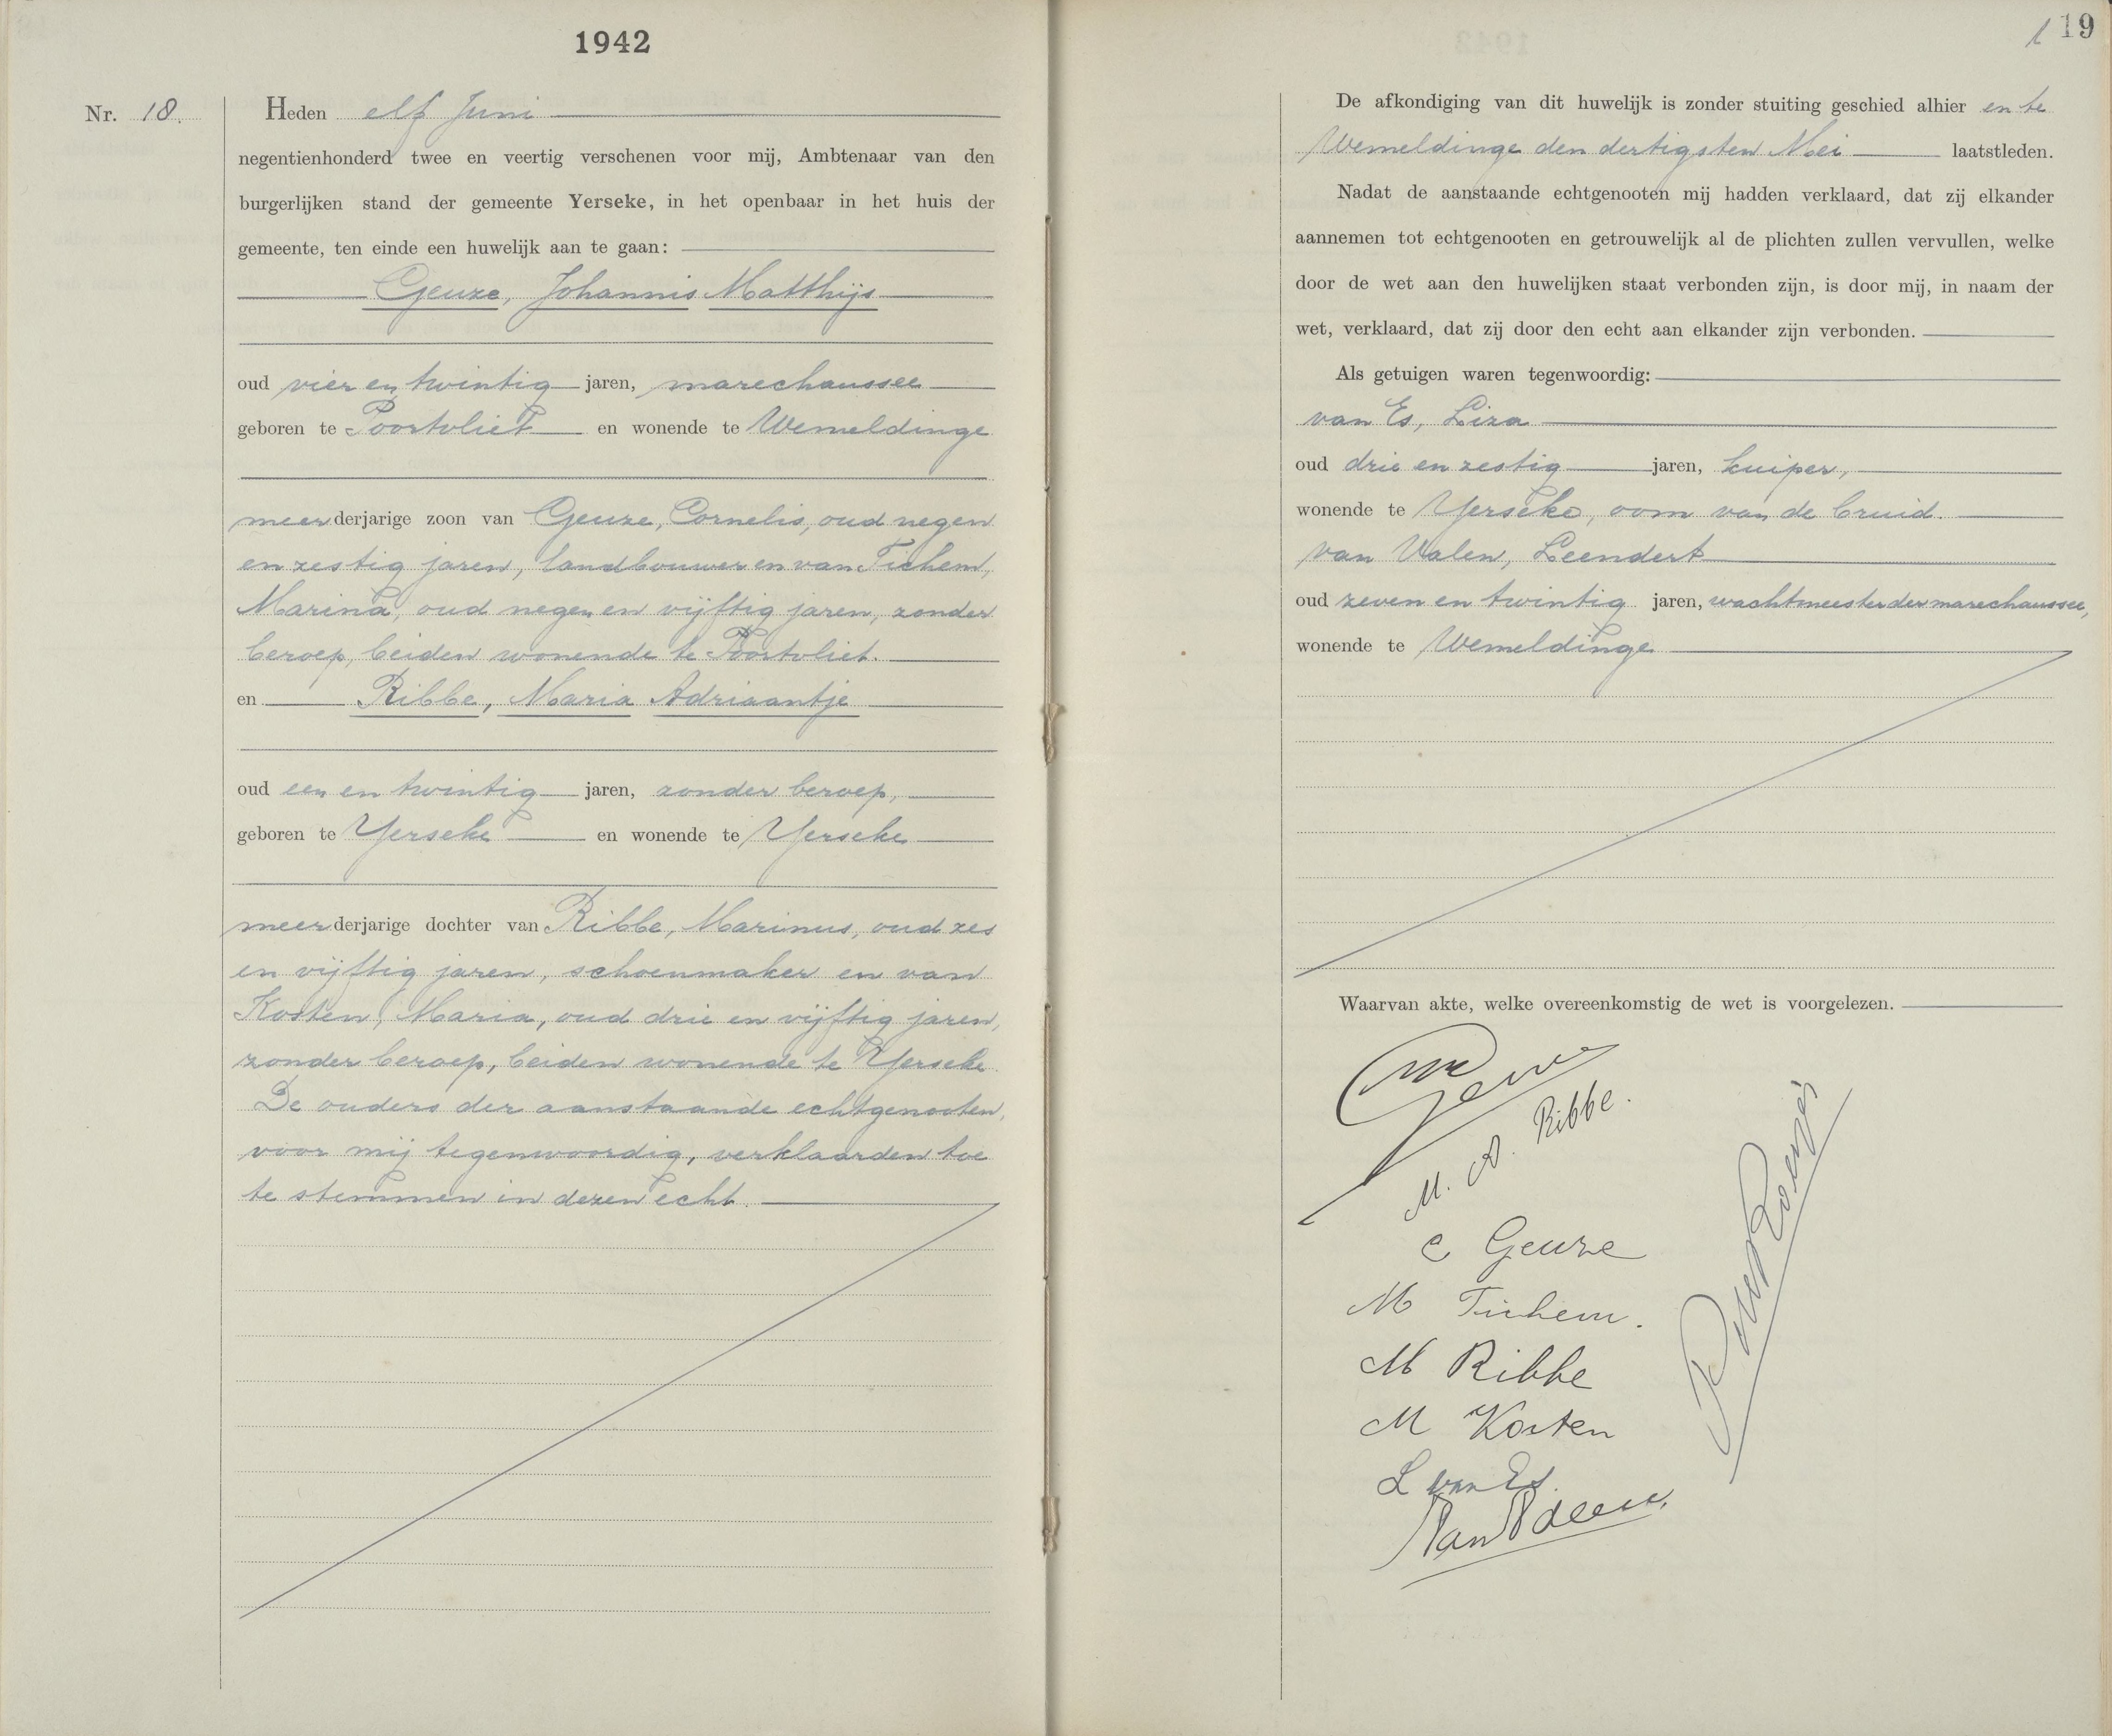 1942
Nr. 18.
Heden elf Juni
negentienhonderd twee en veertig verschenen voor mij, Ambtenaar van den
burgerlijken stand der gemeente Yerseke, in het openbaar in het huis der
gemeente, ten einde een huwelijk aan te gaan:
Geuze, Johannis Matthijs
oud vier en twintig jaren, marechaussee
geboren te Poortvliet en wonende te Wemeldinge
meerderjarige zoon van Geuze, Cornelis, oud negen
en zestig jaren, landbouwer en van Tichem,
Marina, oud negen en vijftig jaren, zonder
beroep, beiden wonende te Poortvliet.
en Ribbe, Maria Adriaantje
oud een en twintig jaren, zonder beroep,
geboren te Yerseke en wonende te Yerseke
meerderjarige dochter van Ribbe, Marinus, oud zes
en vijftig jaren, schoenmaker en van
Kosten, Maria, oud drie en vijftig jaren,
zonder beroep, beiden wonende te Yerseke
De ouders der aanstaande echtgenooten,
voor mij tegenwoordig, verklaarden toe
te stemmen in dezen echt.
19
De afkondiging van dit huwelijk is zonder stuiting geschied alhier en te
Wemeldinge den dertigsten Mei laatstleden.
Nadat de aanstaande echtgenooten mij hadden verklaard, dat zij elkander
aannemen tot echtgenooten en getrouwelijk al de plichten zullen vervullen, welke
door de wet aan den huwelijken staat verbonden zijn, is door mij, in naam der
wet, verklaard, dat zij door den echt aan elkander zijn verbonden.
Als getuigen waren tegenwoordig:
van Es, Liza
oud drie en zestig jaren, kuiper,
wonende te Yerseke, oom van de bruid.
van Valen, Leendert
oud zeven en twintig jaren, wachtmeester der marechaussee,
wonende te Wemeldinge
Waarvan akte, welke overeenkomstig de wet is voorgelezen.
M. A. Ribbe.
C Geuze
M Tichem.
M Ribbe
M Kosten
L van Es.